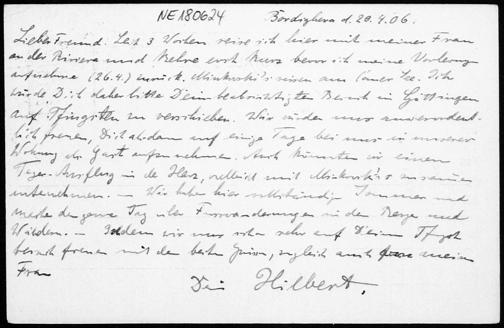 NE180624
Bordighera d. 20.4.06.
Lieber Freund! Seit 3 Wochen reise ich hier mit meiner Frau
an der Riviera und kehre erst kurz bevor ich meine Vorlesung
aufnehme (26.4.) zurück. Minkowski's reisen am Comer See. Ich
würde Dich daher bitte Deinen beabsichtigten Besuch in Göttingen
auf Pfingsten zu verschieben. Wir würden uns ausserordent-
lich freuen, Dich alsdann auf einige Tage bei uns in unserer
Wohnung als Gast aufzunehmen. Auch könnten wir einen
Tages-Ausflug in de Harz, vielleicht mit Minkowski's zusammen
unternehmen. — Wir haben hier vollständig Sommer und
machen den ganzen Tag über Fusswanderungen in den Bergen und
Wäldern. — Indem wir uns schon sehr auf Deinen Pfingst
besuch freuen mit den besten Grüssen, zugleich auch meiner
Frau
Dein Hilbert.